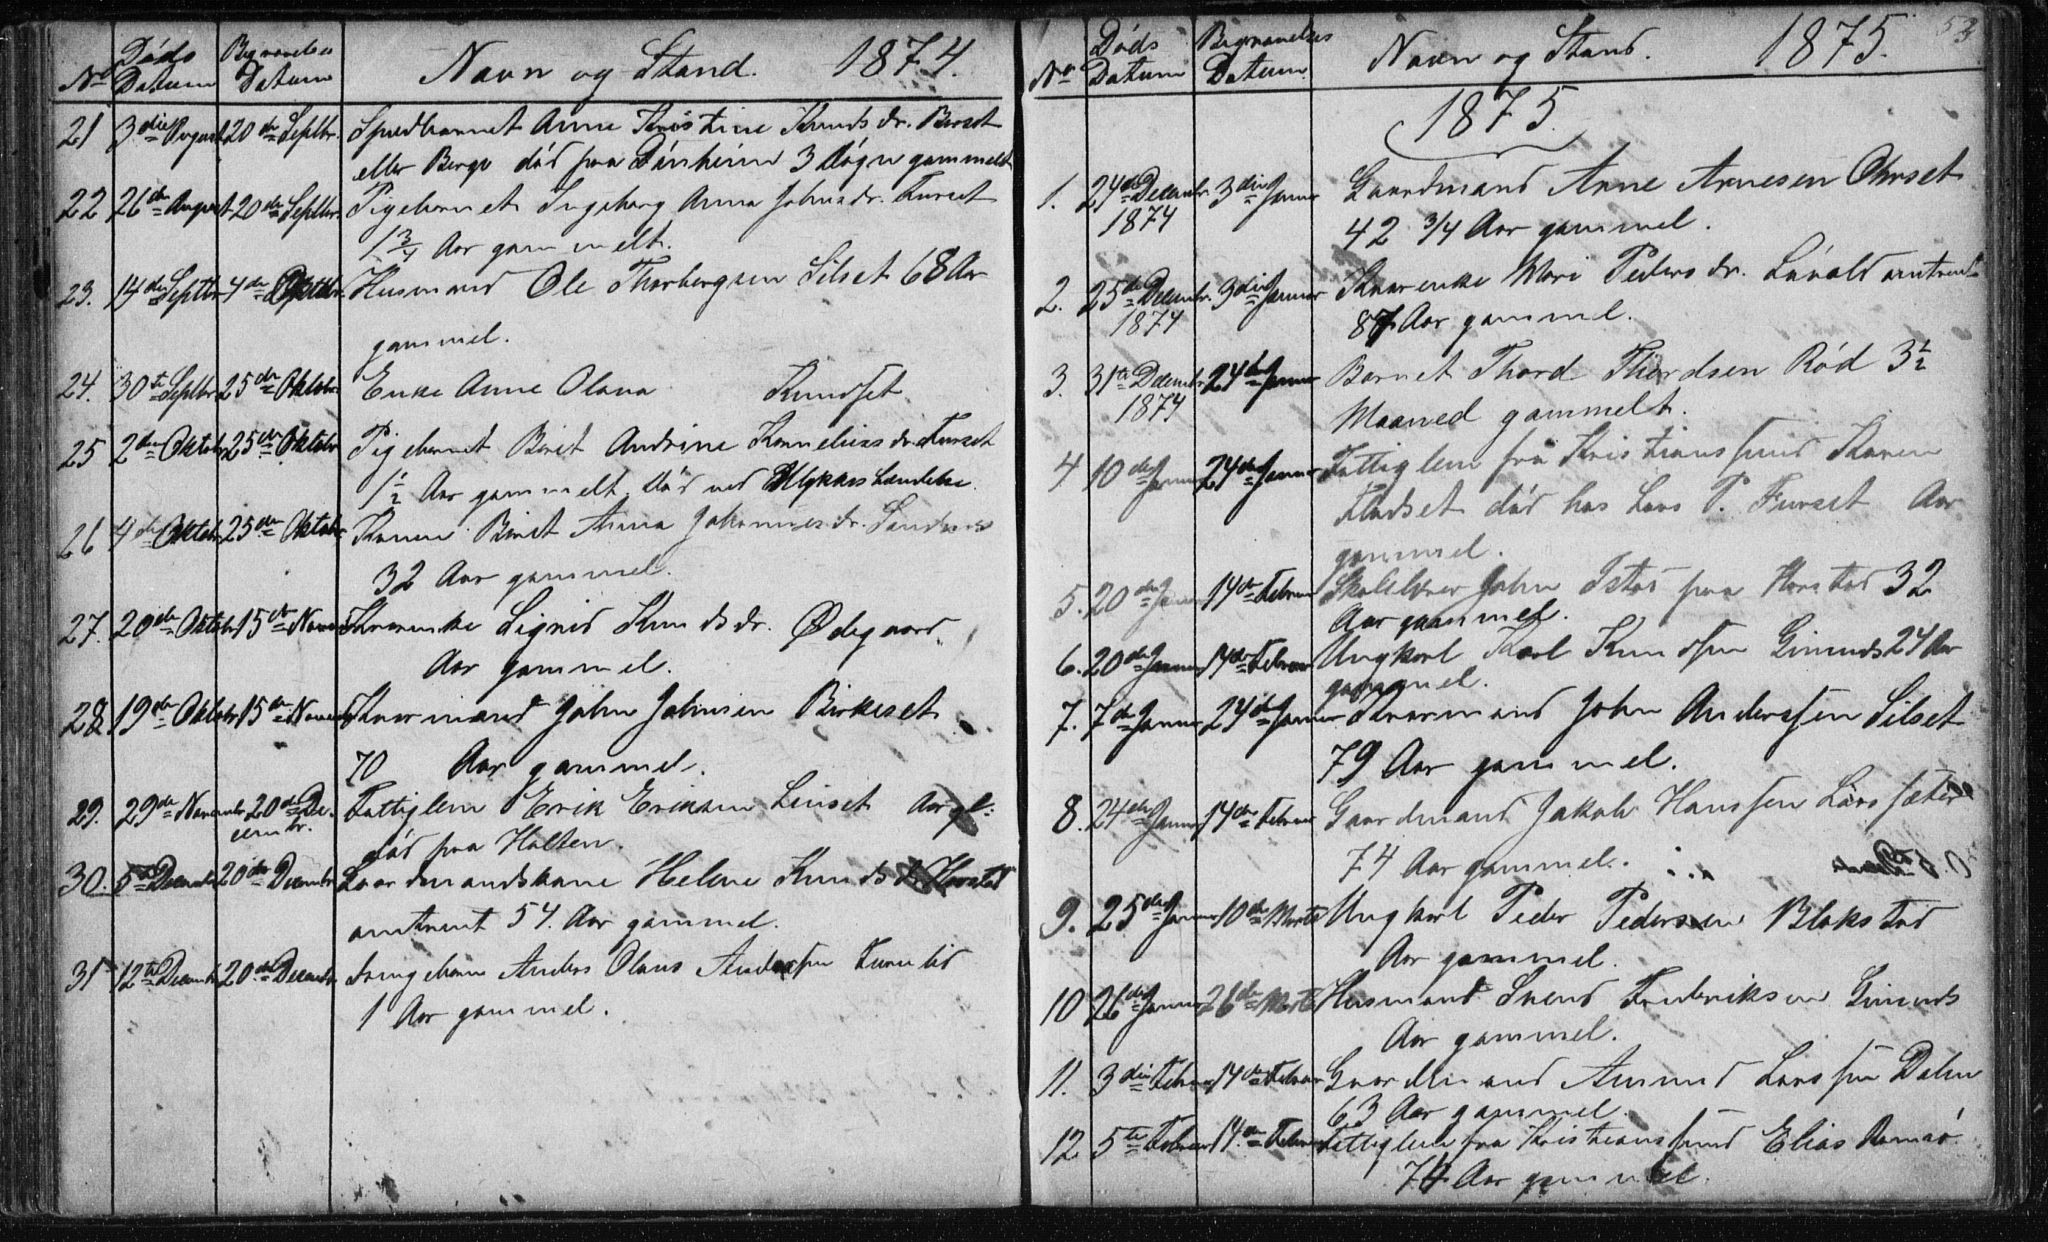 No Døds Datum Begravelses Datum Navn og Stand. 1874.
21 3die August 20de Septbr. Spædbarnet Anne Kristine Knudsdr. Berset
eller Berge død paa 3 Døgn gammelt
22 26de August 20de Septbr. Pigebarnet Ingeborg Anna Johnsdr. Furset
1 3/4 Aar gammelt.
23. 14de Septbr 4de Oktobr. Husmand Ole Thorbergsen Silset 68 Aar
gammel.
24. 30te Septbr. 25de Oktobr. Enke Anne Olava Knudset
25 2den Oktobr 25de Oktobr Pigebarnet Berit Andrine Korneliusdr. Furset
1 1/2 Aar gammelt død ved Ulykkes hændelse.
26 4de Oktobr 25de Oktobr Konen Birit Anna Johannesdr.
32 Aar gammel.
27. 20de Oktobr 15de Novem Kaarenke Sigrid Knudsdr. Ødegaard.
Aar gammel.
28 19de Oktobr. 15de Novembr Kaarmand John Johnsen Birkeset
70 Aar gammel.
29. 29de Novembr 20de De-
cembr. Fattiglem Erik Eriksen Linset Aar gl:
død paa Holten.
30. 5te Decembr 20de Decembr. Gaardmandskone Helene Knudsdr. Horstad
omtrent 54. Aar gammel.
31 12te Decembr 20de Decembr. Drengebarn Anders Olaus Anderssen
1 Aar gammel.
53
No Døds Datum Begravelses Datum Navn og Stand. 1875.
1875.
1. 24de Decembr. 3die Januar Gaardmand Arne Arnesen Ohrset
1874 42 3/4 Aar gammel.
2. 25de Decembr. 3die Januar Kaarenke Mari Pedersdr. Løvold omtrent
1874 87 Aar gammel.
3. 31te Decembr 24de Januar Barnet Thord Thordsen Rød 3 1/2
1874 Maaned gammelt.
4 10de Januar 24de Januar Fattiglem fra Kristianssund Karen
Fladset død hos Lars P. Furset Aar
gammel.
5. 20de Januar 14de Februar Skolelærer John Istad paa Horstad 32
Aar gammel.
6. 20de Januar 14de Februar Ungkarl Karl Knudssen Gimnes 24 Aar
gammel.
7. 7de Januar 24de Januar Kaarmand John Anderssen Silset
79 Aar gammel.
8. 24de Januar 14de Februar Gaardmand Jakob Hanssen
74 Aar gammel.
9. 25de Januar 10de Marts Ungkarl Peder Pedersen Blakstad
Aar gammel.
10 26de Januar 26de Marts Husmand Svend Frederiksen Gimnes
Aar gammel.
11. 3die Februar 14de Februar Gaardmand Amund Larssen Dalen
63 Aar gammel.
12 5te Februar 14de Februar Fattiglem fra Kristianssund Elias Ramsø
74 Aar gammel.